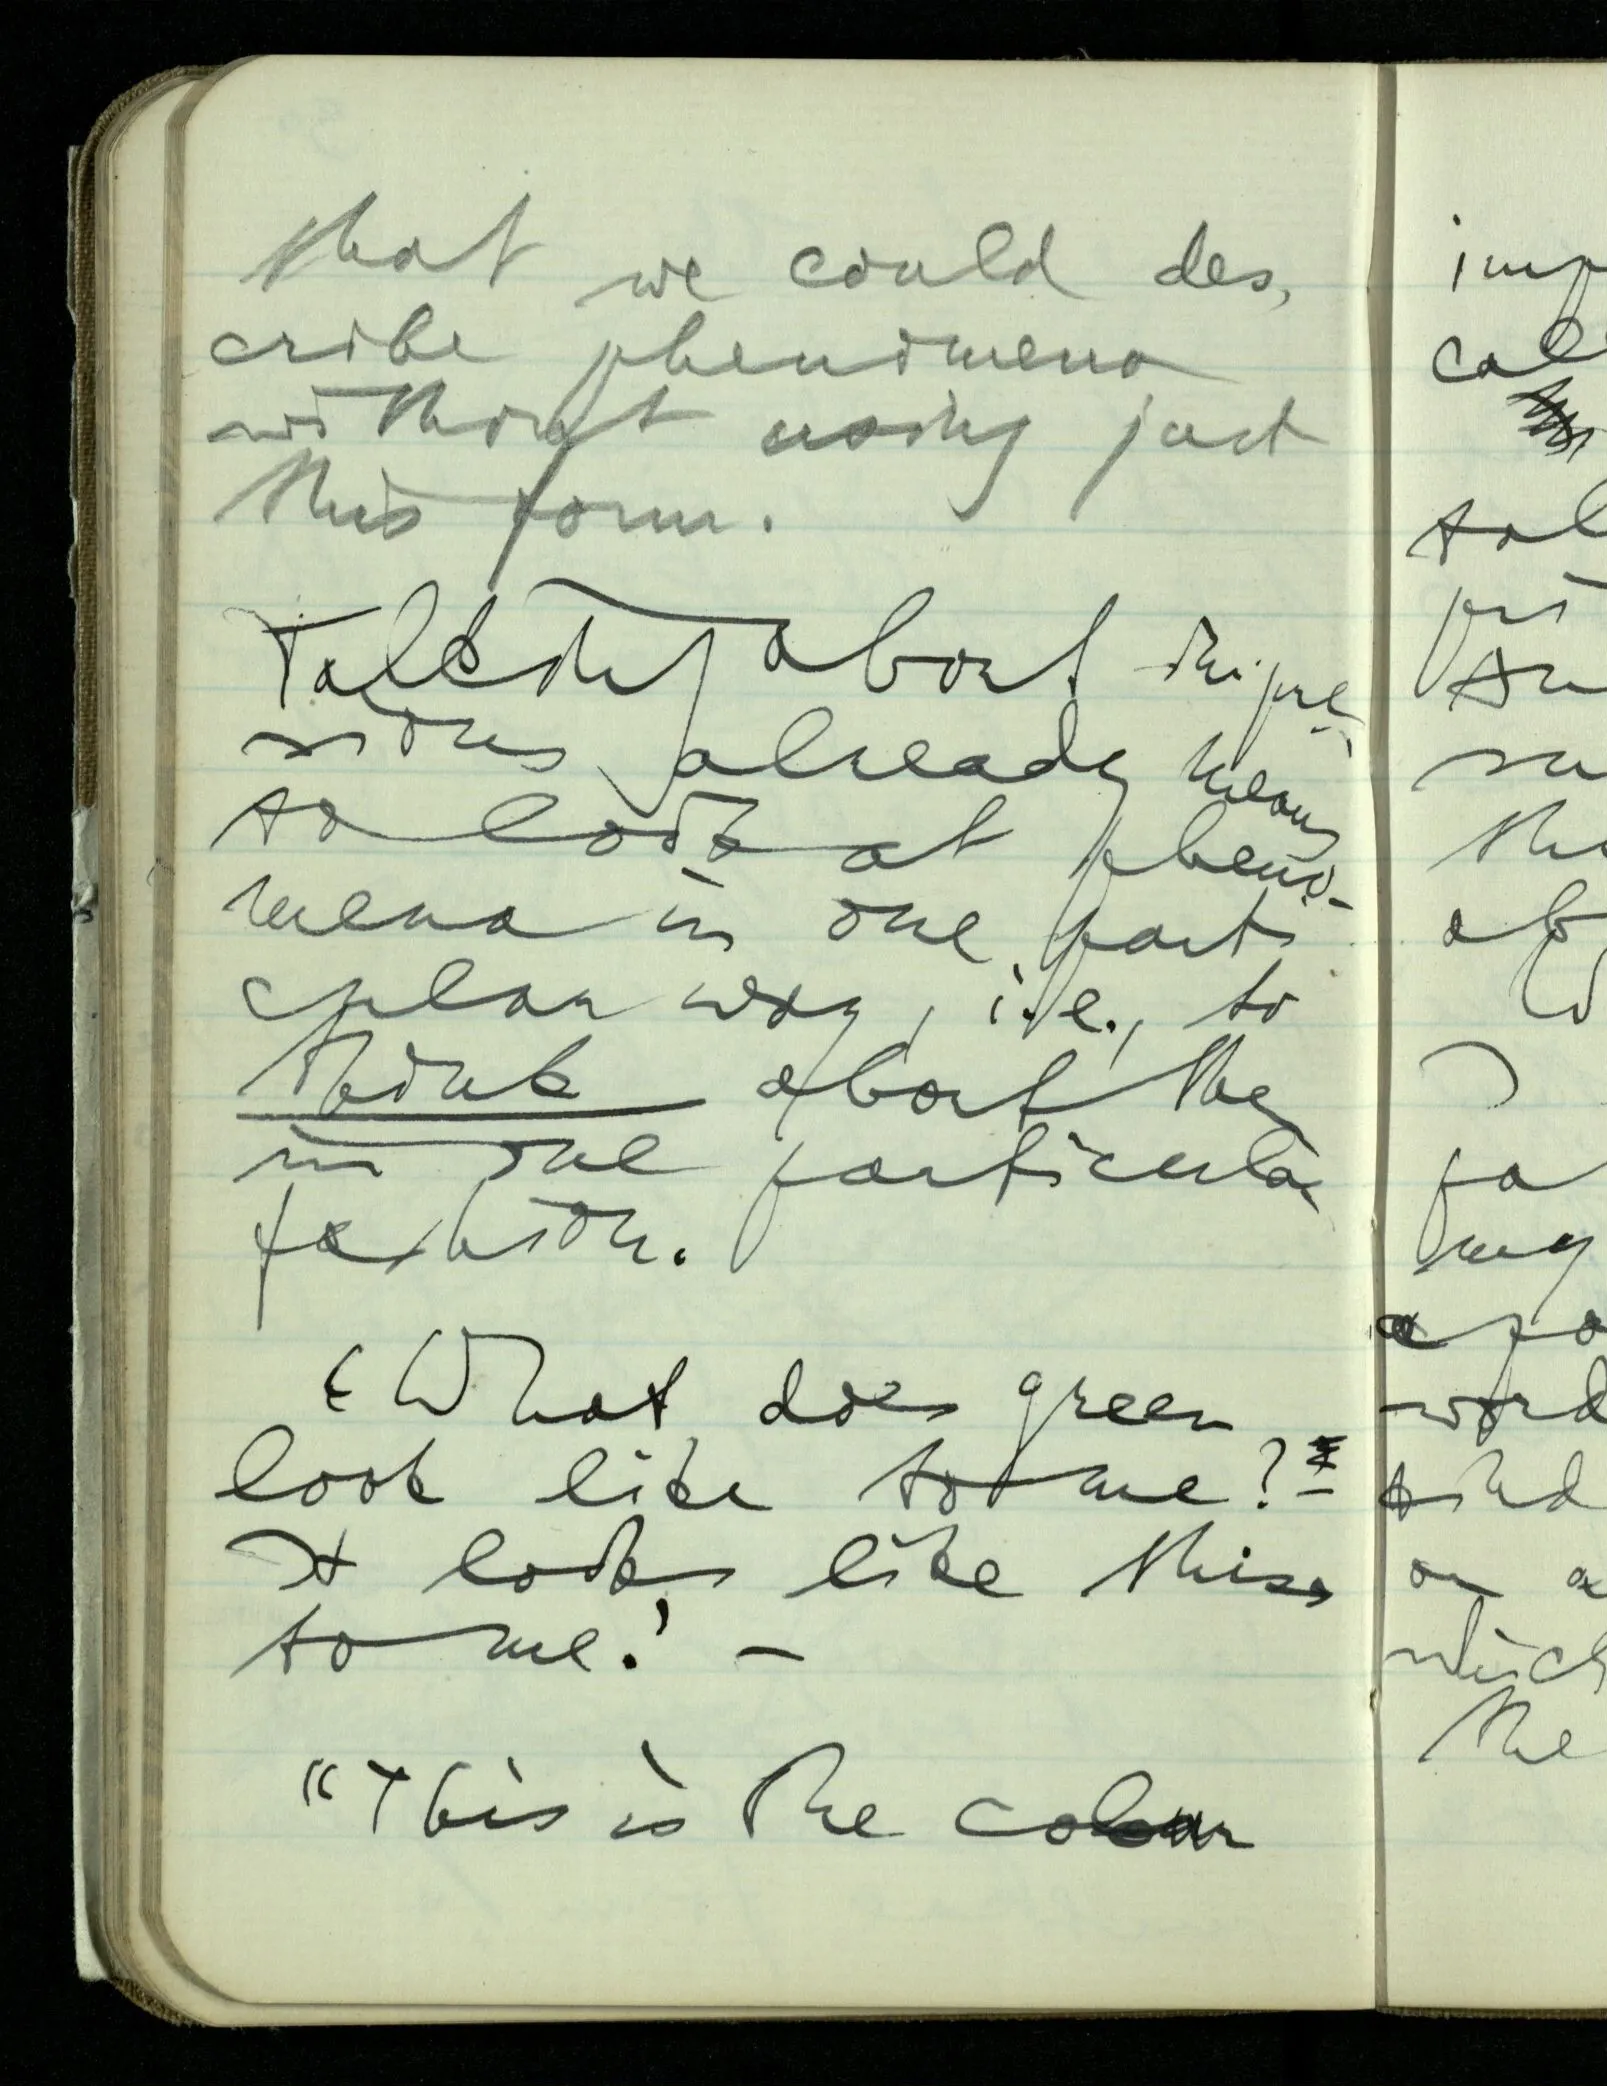 that we could des-
cribe phenomena
without using just
this form.
Talking about impre-
ssions already means
to look at pheno-
mena in one parti
cular way, i.e., to
think about the
in one particular
fashion.
‘What does green
look like to me? –
It looks like this
to me.’ –
“This is the colour
the